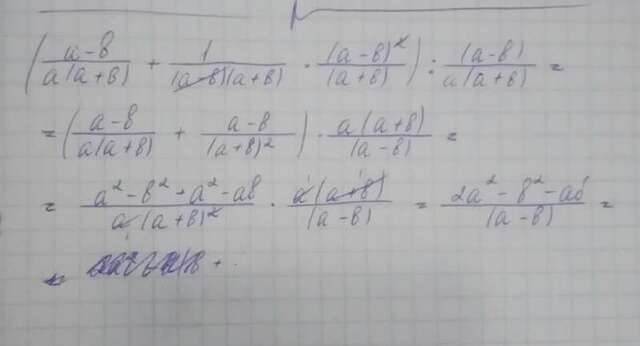 (a-b/a(a+b) + 1/(a-b)(a+b) · (a-b)²/(a+b)) : (a-b)/a(a+b) =
= (a-b/a(a+b) + a-b/(a+b)²) · a(a+b)/(a-b) =
= a²-b²+a²-ab/a(a+b)² · a(a+b)/(a-b) = 2a²-b²-ab/(a-b) =